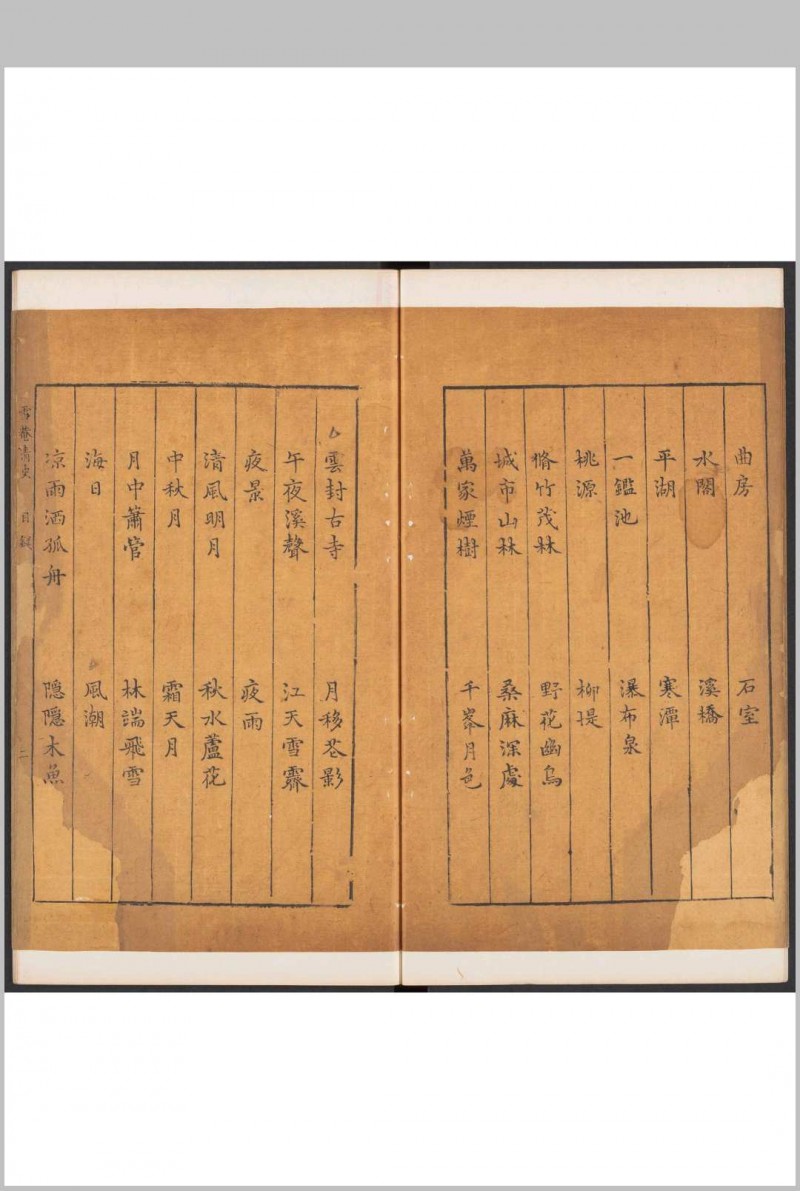 曲房　石室
水閣　溪橋
平湖　寒潭
一鑑池　瀑布泉
桃源　柳堤
脩竹茂林　野花幽鳥
城市山林　桑麻深處
萬家煙樹　千峯月色
雲封古寺　月移花影
午夜溪聲　江天雪霽
夜景　夜雨
清風明月　秋水蘆花
中秋月　霜天月
月中簫管　林端飛雪
海日　風潮
凉雨洒孤舟　隱隱木魚
雪菴清史　目錄　二